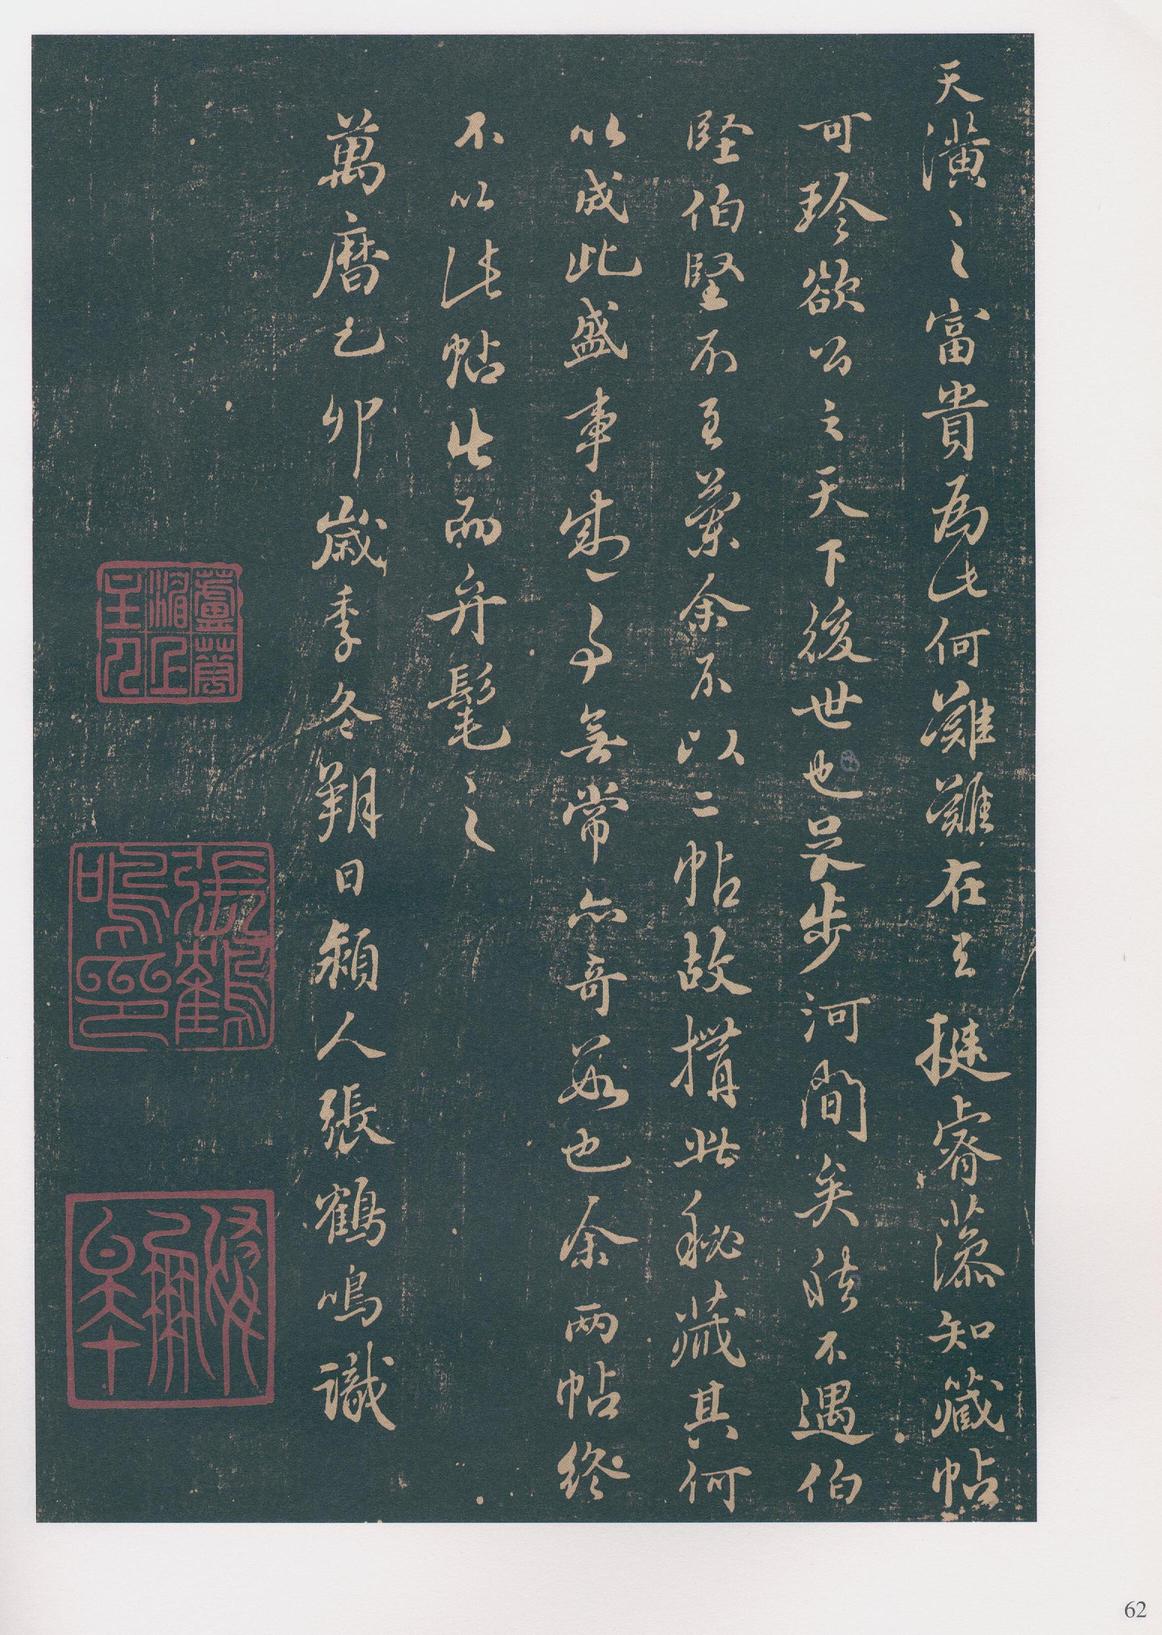 天潢之富貴為此何難難在 王挺睿藻知藏帖
可珍欲公之天下後世也足步河間矣然不遇伯
堅伯堅不至蘭余不以二帖故捐此秘藏其何
以成此盛事時一事無常亦奇哉也余兩帖終
不以法帖此而弁髦之
萬曆乙卯歲季冬朔日潁人張鶴鳴識
張鶴鳴印
62